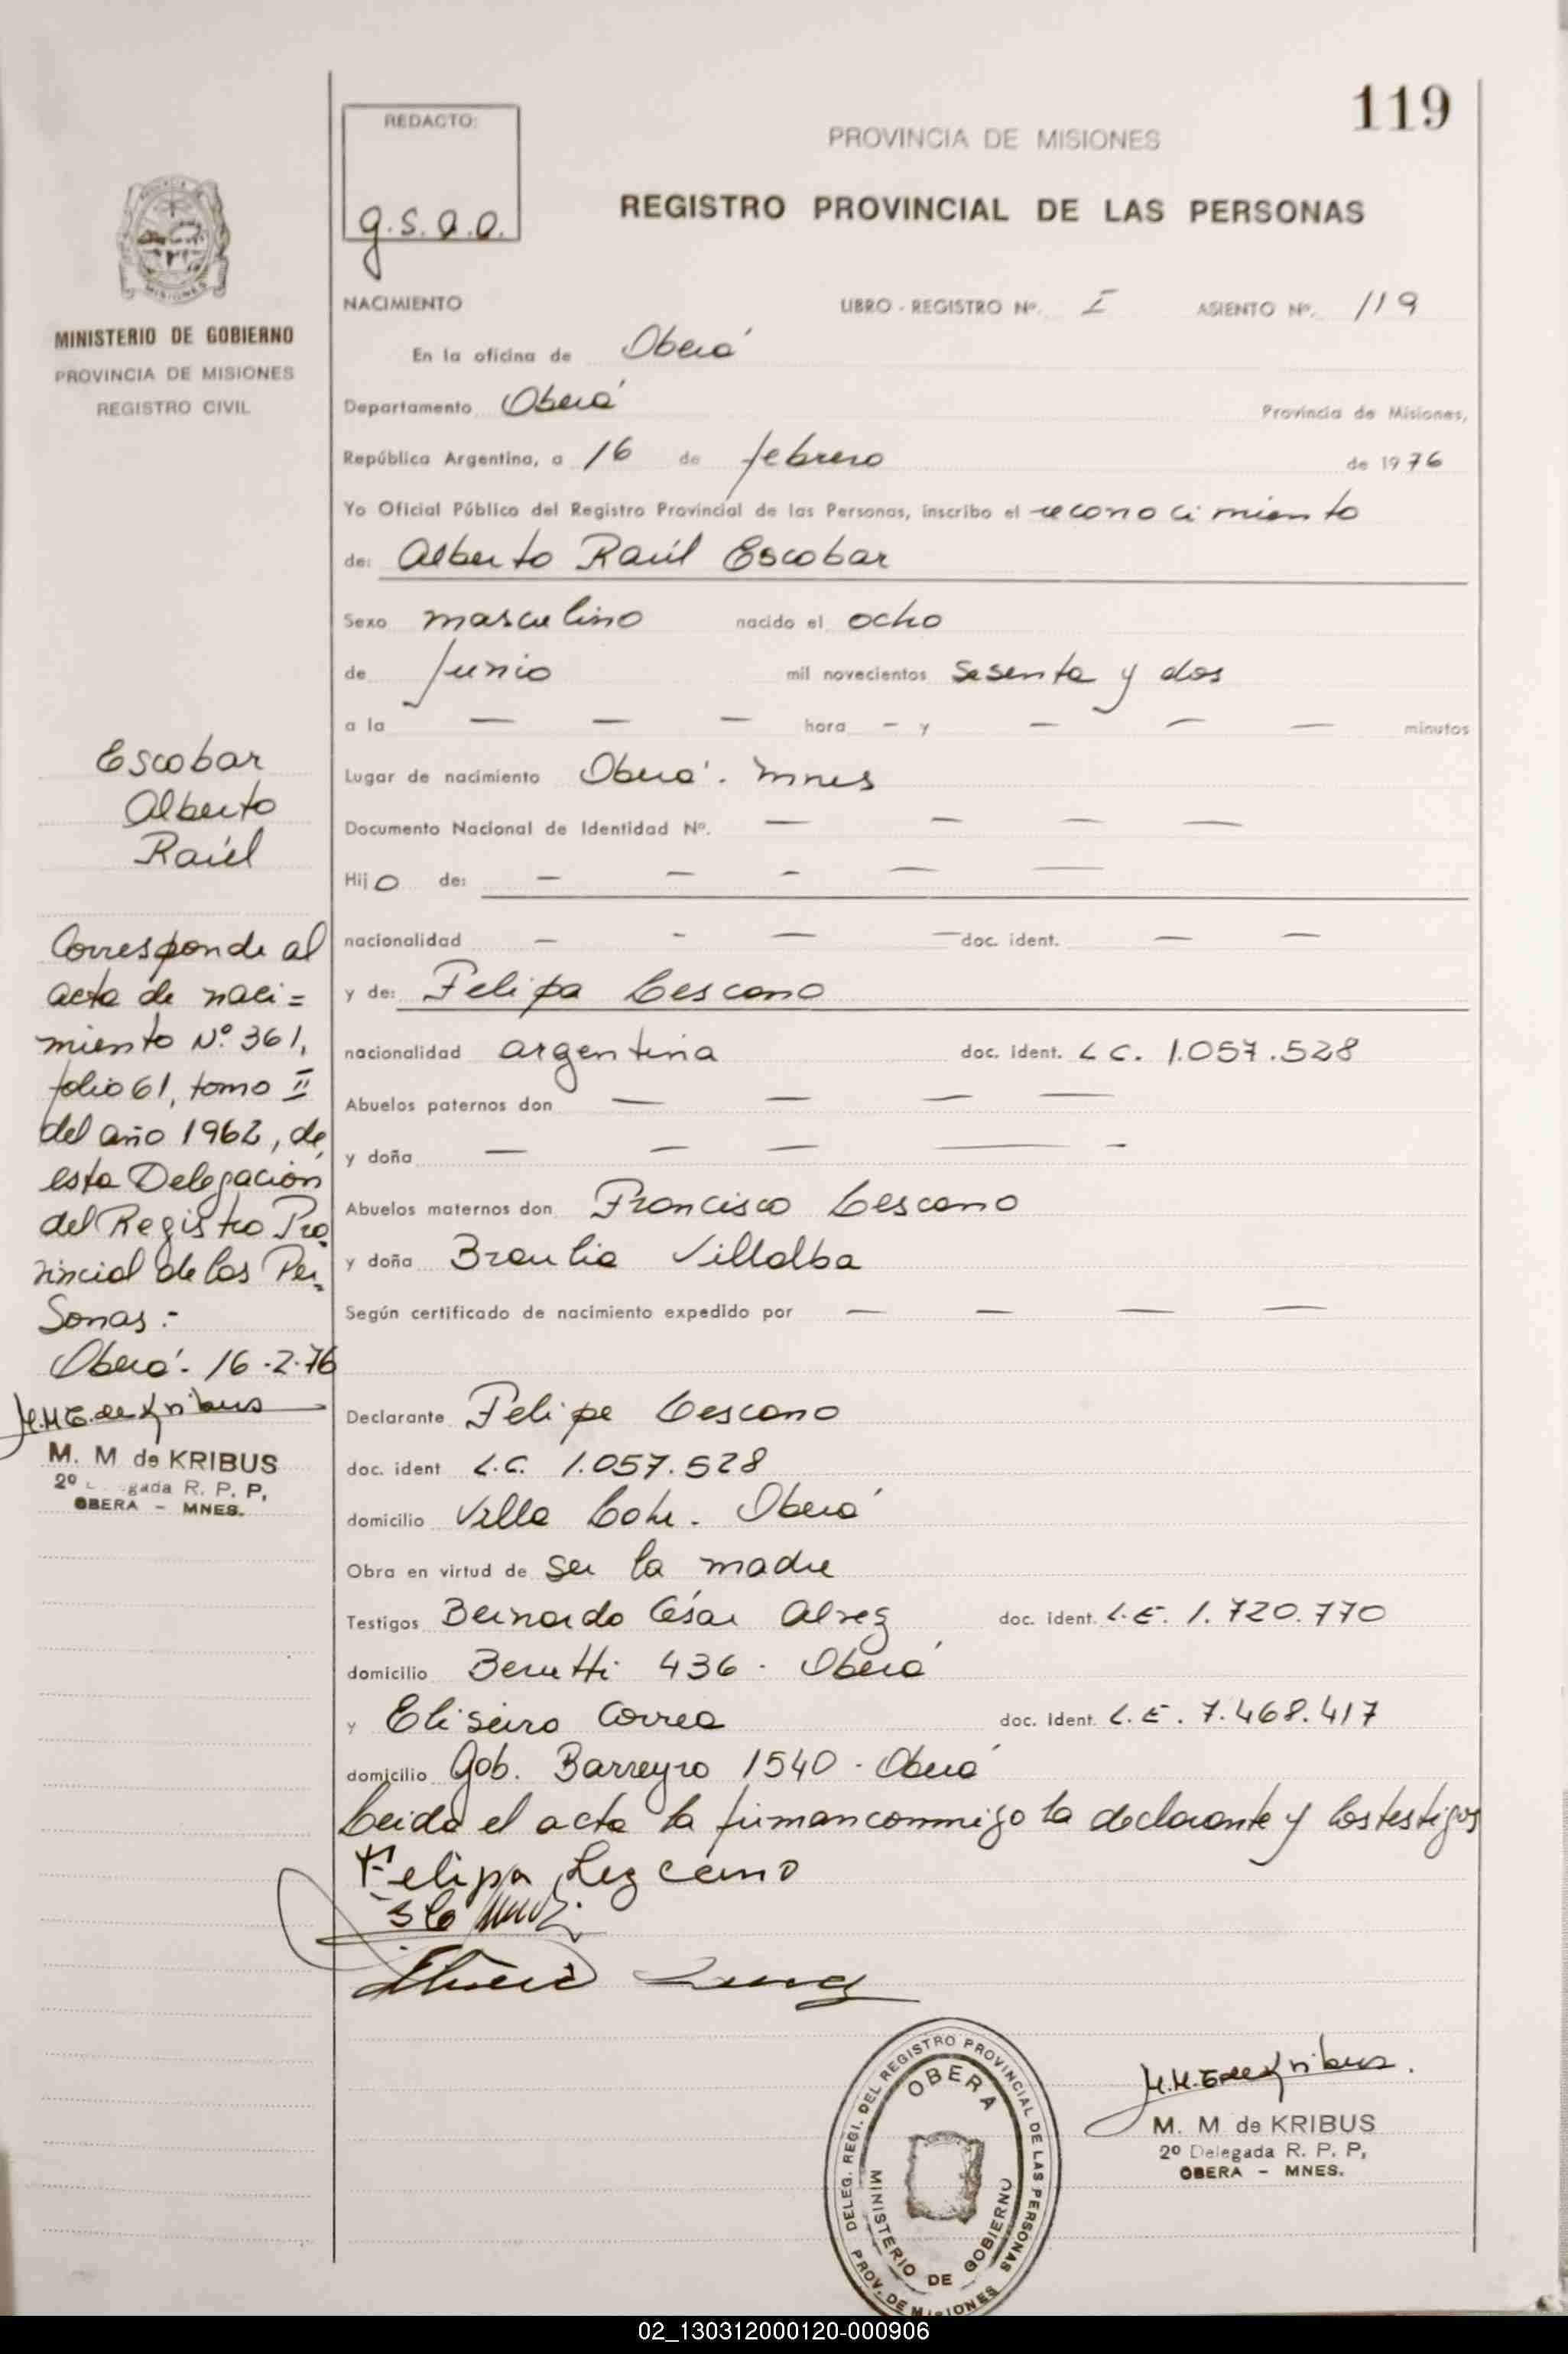 119
REDACTO:
g.s.a.o.
PROVINCIA DE MISIONES
REGISTRO PROVINCIAL DE LAS PERSONAS
MINISTERIO DE GOBIERNO
PROVINCIA DE MISIONES
REGISTRO CIVIL
NACIMIENTO LIBRO - REGISTRO Nº. I ASIENTO Nº. 119
En la oficina de Oberá
Departamento Oberá Provincia de Misiones,
República Argentina, a 16 de febrero de 1976
Yo Oficial Público del Registro Provincial de las Personas, inscribo el reconocimiento
de: Alberto Raúl Escobar
Sexo masculino nacido el ocho
de Junio mil novecientos sesenta y dos
a la — — — hora — y — — — minutos
Lugar de nacimiento Oberá. Mnes
Documento Nacional de Identidad Nº. — — — —
Hijo de: — — — — —
nacionalidad — — — — doc. ident. — —
y de: Felipa Lescano
nacionalidad argentina doc. ident. L C. 1.057.528
Abuelos paternos don — — — —
y doña — — — — —
Abuelos maternos don Francisco Lescano
y doña Braulia Villalba
Según certificado de nacimiento expedido por — — — —
Declarante Felipa Lescano
doc. ident L.C. 1.057.528
domicilio Villa Oberá
Obra en virtud de ser la madre
Testigos Bernardo César Alvez doc. ident. L.E. 1.720.770
domicilio Berutti 436 - Oberá
y Eliseiro Correa doc. ident. L.E. 7.468.417
domicilio Gob. Barreyro 1540 - Oberá
Leida el acta la firman conmigo la declarante y los testigos
Felipa Lezcano
Escobar
Alberto
Raúl
Corresponde al
acta de naci=
miento Nº 361,
folio 61, tomo II
del año 1962, de
esta Delegación
del Registro Pro
vincial de las Per
sonas.-
Oberá. 16-2-76
M.M.E. de Kribus
M. M de KRIBUS
2º gada R. P. P,
OBERA - MNES.
M.M.E de Kribus.
M. M de KRIBUS
2º Delegada R. P. P,
OBERA - MNES.
DELEG. REGI. DEL REGISTRO PROVINCIAL DE LAS PERSONAS
OBERA
MINISTERIO DE GOBIERNO
PROV. DE MISIONES
02_130312000120-000906